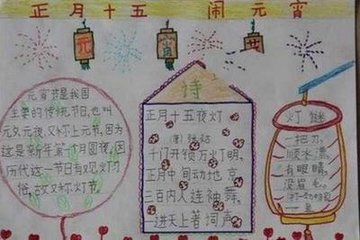 正月十五 闹元宵
元 宵 节
元宵节是我国
主要的传统节日,也叫
元夕、元夜,又称上元节,因为
这是新年第一个月圆夜,因
历代这一节日有观灯习
俗,故又称灯节。
诗
正月十五夜灯
(唐)张祜
千门开锁万灯明,
正月中旬动地京
三百内人连袖舞,
一进天上著词声
灯谜
一把刀,
顺水漂
有眼睛,
没眉毛。